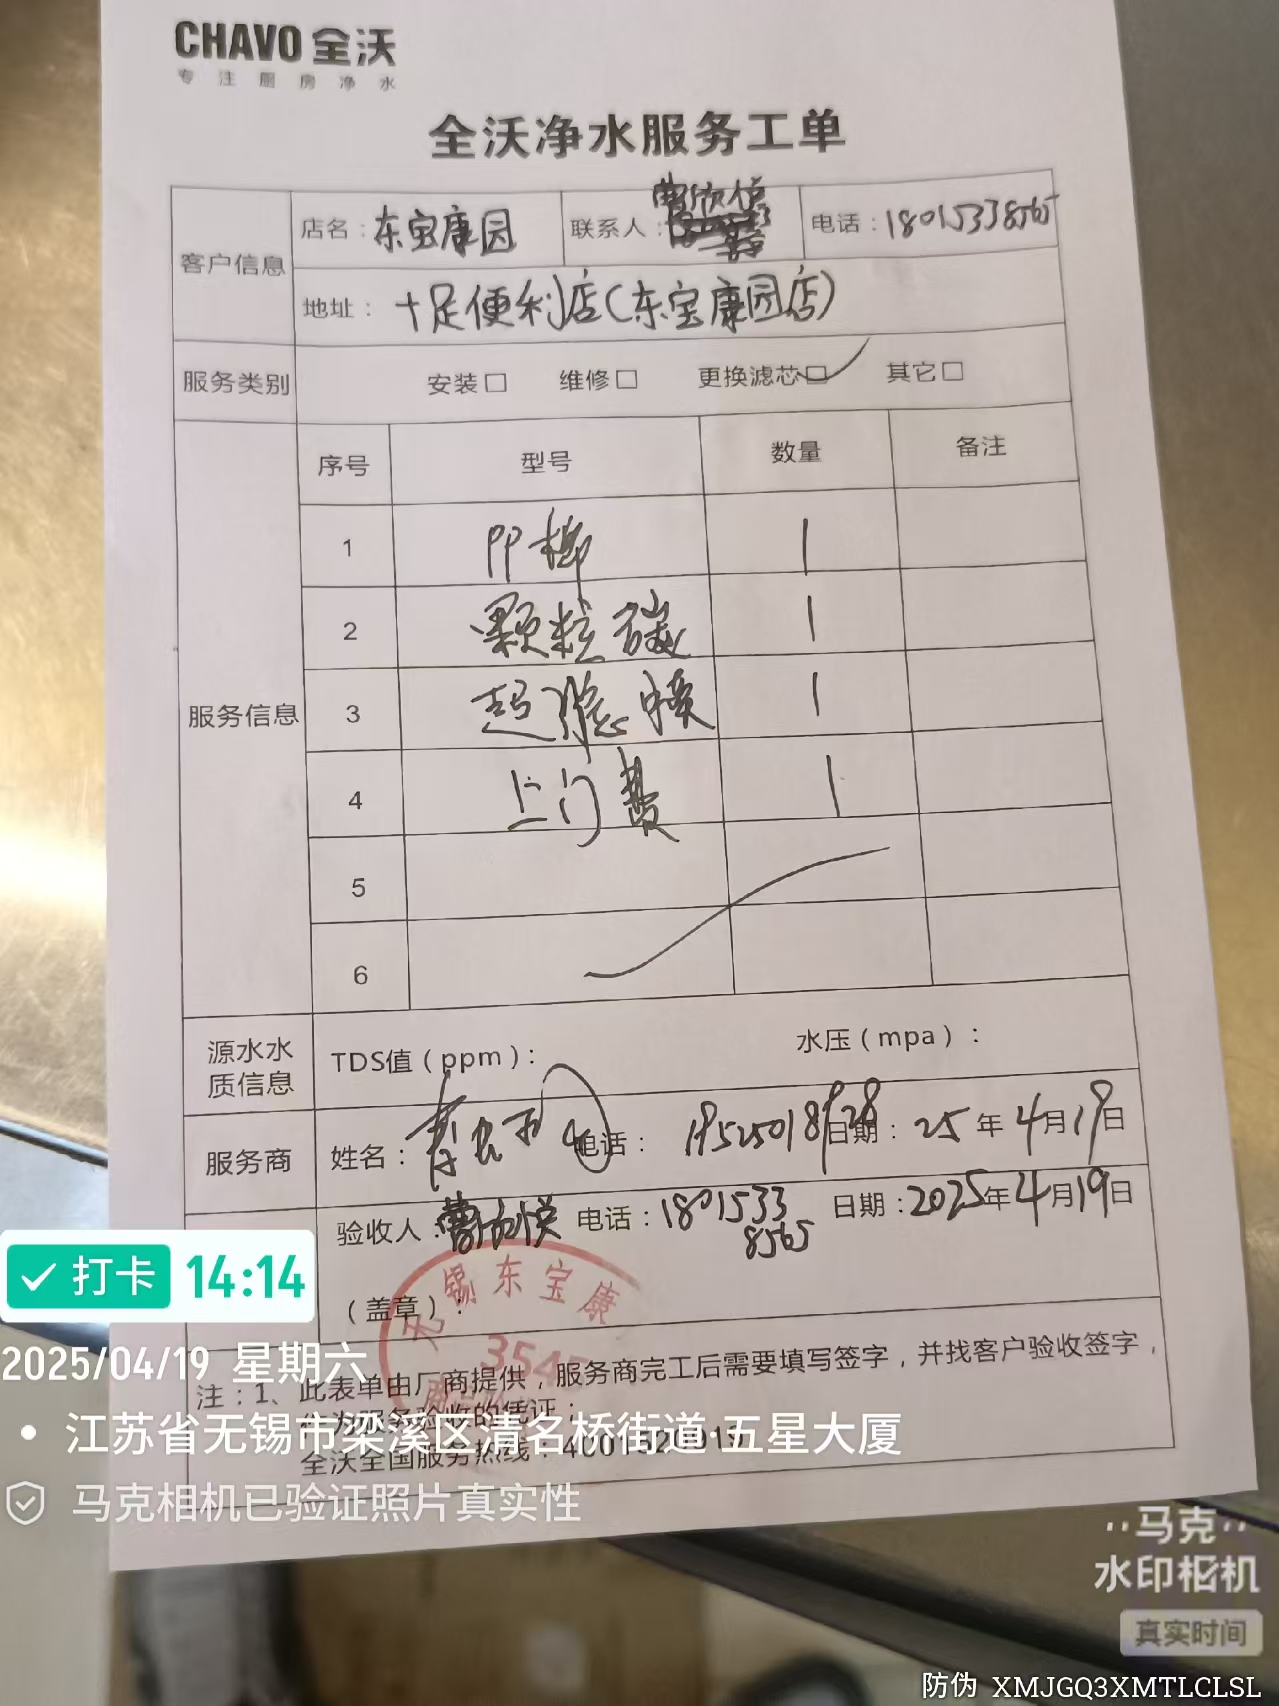 CHAVO 全沃
专注厨房净水
全沃净水服务工单
客户信息
店名：东宝康园
联系人：曹欣悦
电话：18015338565
地址：十足便利店（东宝康园店）
服务类别
安装□ 维修□ 更换滤芯□ 其它□
服务信息
序号 型号 数量 备注
1 PP棉 1
2 颗粒碳 1
3 超滤膜 1
4 上门费 1
5
6
源水水质信息
TDS值（ppm）： 水压（mpa）：
服务商
姓名： 电话：19525018928 日期：25年4月19日
验收人：曹欣悦 电话：18015338565 日期：2025年4月19日
（盖章）：
无锡东宝康
354
注：1、此表单由厂商提供，服务商完工后需要填写签字，并找客户验收签字，
作为服务验收的凭证；
全沃全国服务热线：
打卡 14:14
2025/04/19 星期六
江苏省无锡市梁溪区清名桥街道·五星大厦
马克相机已验证照片真实性
马克
水印相机
真实时间
防伪 XMJGQ3XMTLCLSL